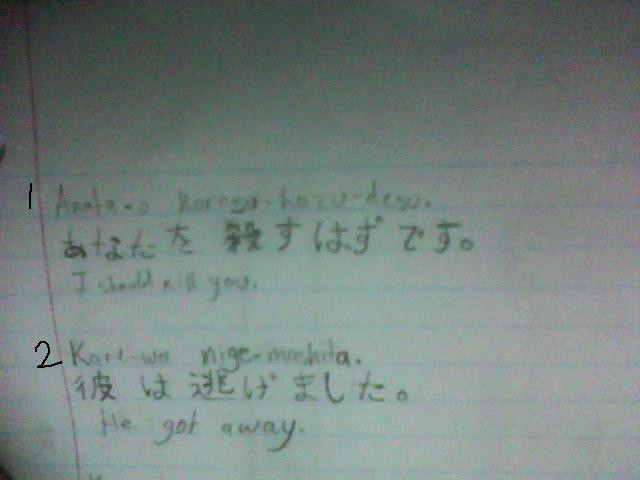 1 Anata-o korosu-hazu-desu.
あなたを殺すはずです。
I should kill you.
2 Kare-wa nige-mashita.
彼は逃げました。
He got away.